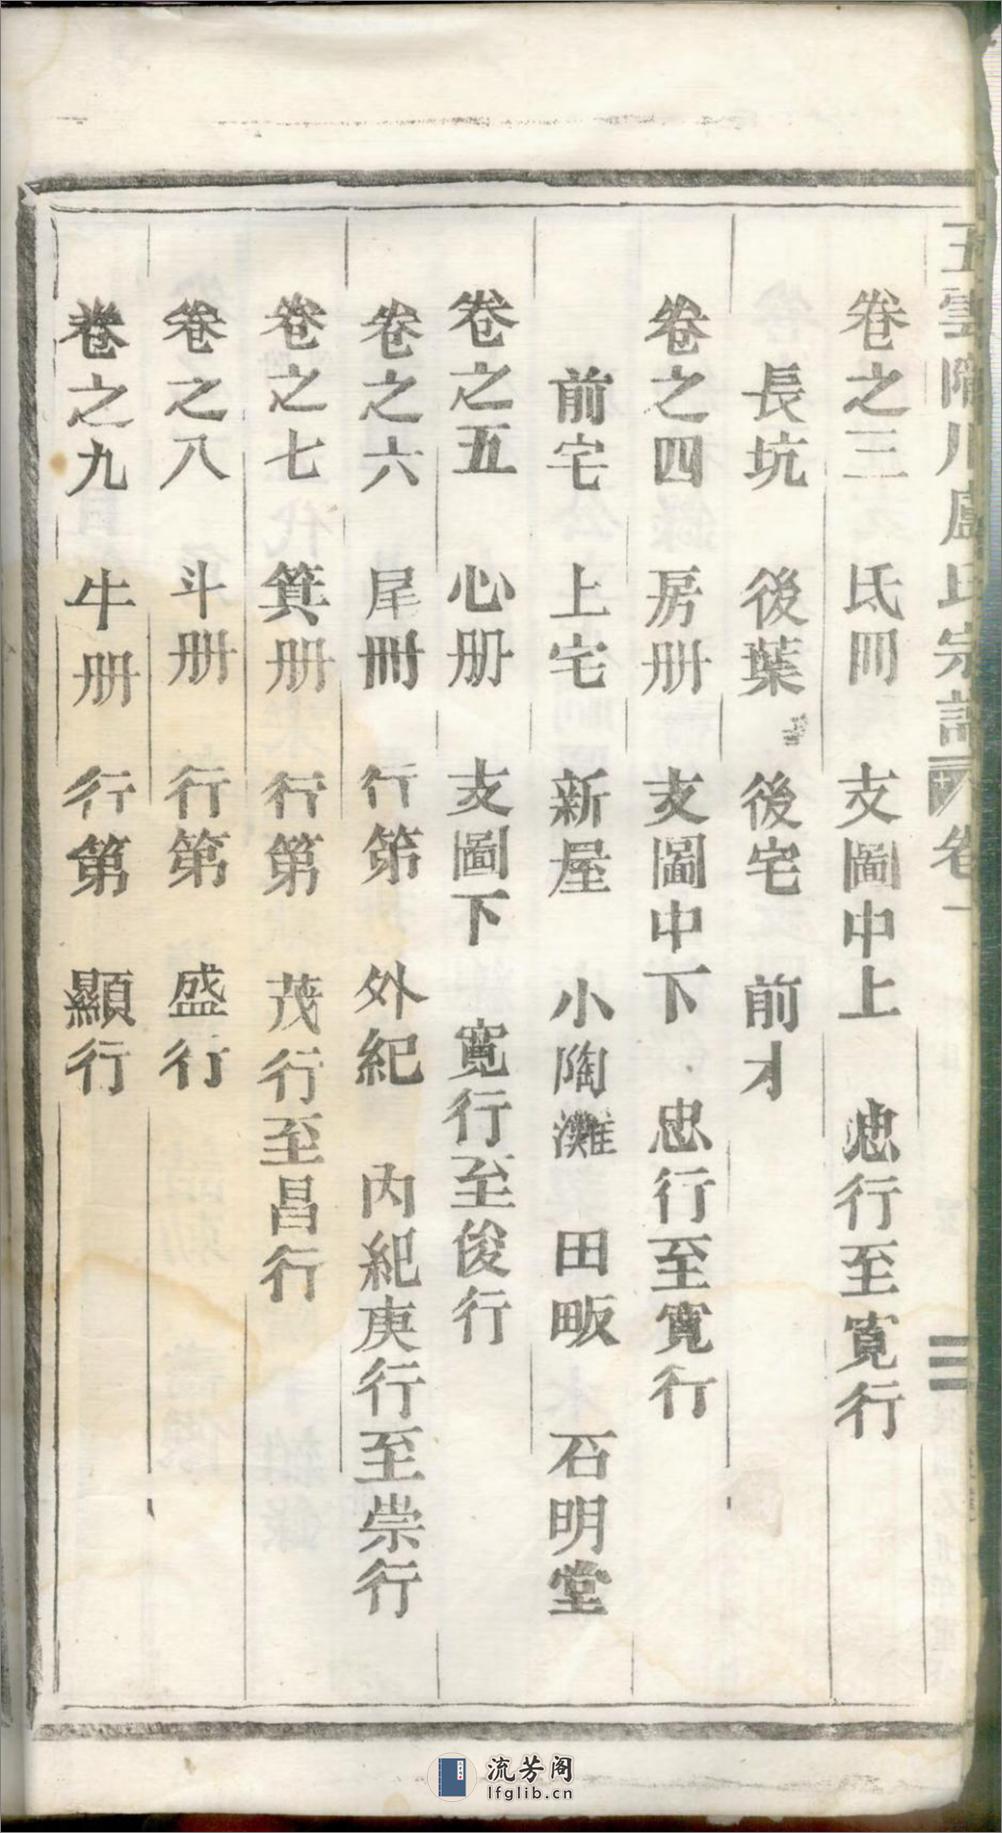 五雲隋川盧氏宗譜 卷一 三
卷之三 氐冊 支圖中上 忠行至寬行
長坑 後葉 後宅 前才
卷之四 房冊 支圖中下 忠行至寬行
前宅 上宅 新屋 小陶灘 田畈 石明堂
卷之五 心册 支圖下 寬行至俊行
卷之六 尾冊 行第 外紀 內紀庚行至崇行
卷之七 箕册 行第 茂行至昌行
卷之八 斗册 行第 盛行
卷之九 牛册 行第 顯行
流芳阁
lfglib.cn